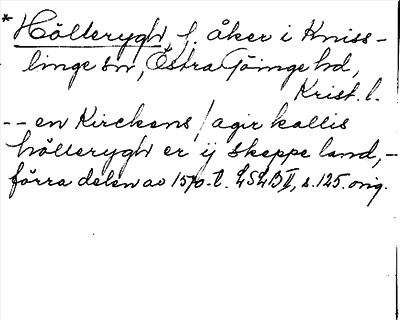 * Höllerygh, f. åker i Kniss-
linge sn, Östra Göinge hd,
Krist. l.
-- en Kirckens / agir kallis
höllerygh er ij skeppe land,-
förra delen av 1570-t. LSLB II, s. 125. orig.